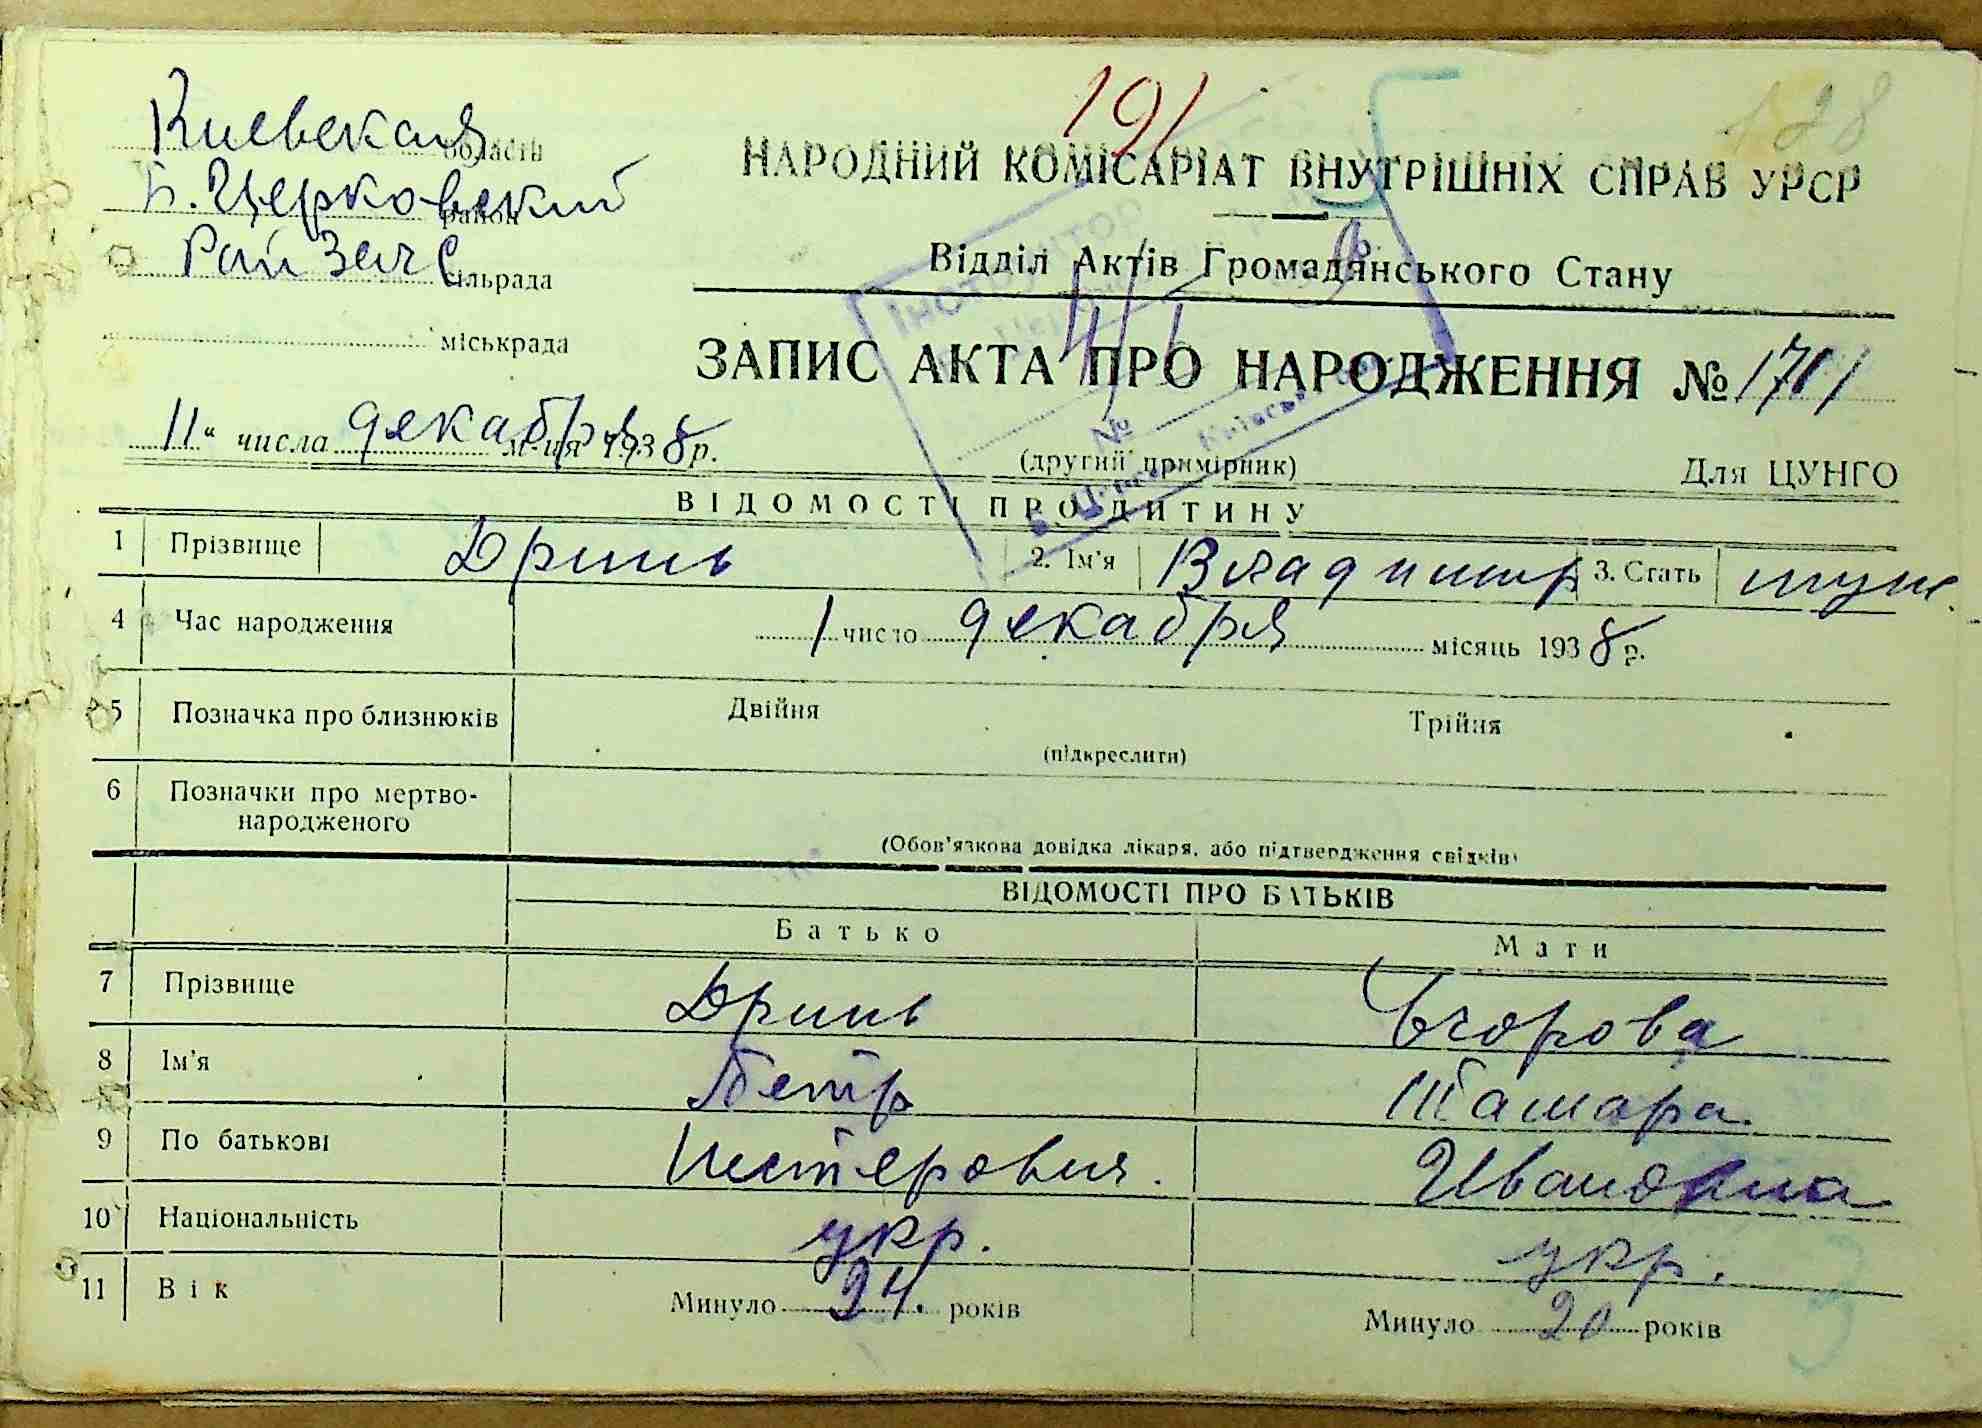 191
128
Киевская області
Б. Церковский район
РайЗагс сільрада
міськрада
НАРОДНИЙ КОМІСАРІАТ ВНУТРІШНІХ СПРАВ УРСР
Відділ Актів Громадянського Стану
ЗАПИС АКТА ПРО НАРОДЖЕННЯ № 1701
11 " числа декабря м-ця 1938 р.
(другий примірник)
Для ЦУНГО
ВІДОМОСТІ ПРО ДИТИНУ
1 Прізвище Дринь 2. Ім'я Владимир 3. Стать муж.
4 Час народження 1 число декабря місяць 1938 р.
5 Позначка про близнюків Двійня Трійня
(підкреслити)
6 Позначки про мертво-
народженого
(Обов'язкова довідка лікаря, або підтвердження свідків)
ВІДОМОСТІ ПРО БАТЬКІВ
Батько Мати
7 Прізвище Дринь Егорова
8 Ім'я Петр Тамара.
9 По батькові Нестерович. Ивановна
10 Національність укр. укр.
11 Вік Минуло 24. років Минуло 20 років